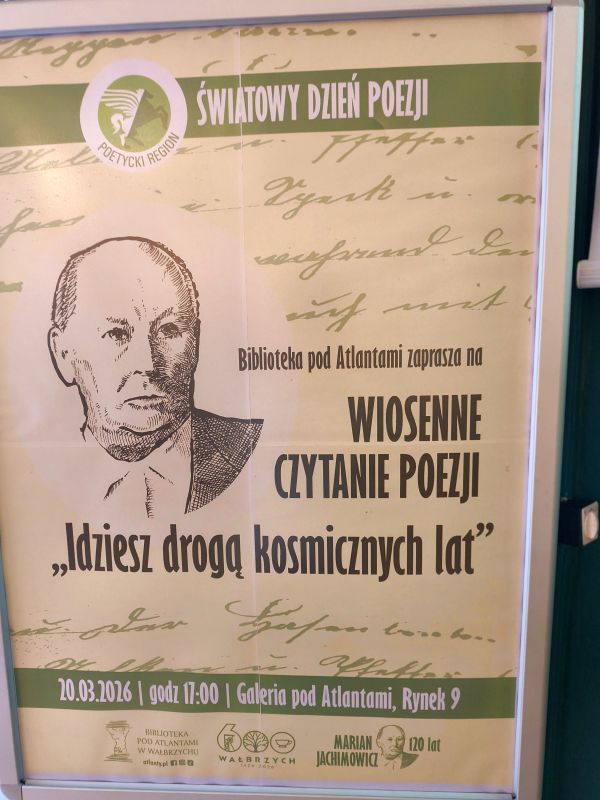 ŚWIATOWY DZIEŃ POEZJI
POETYCKI REGION
Speck u.
während
mit
Biblioteka pod Atlantami zaprasza na
WIOSENNE
CZYTANIE POEZJI
„Idziesz drogą kosmicznych lat”
u. oder Hasen
20.03.2026 | godz 17:00 | Galeria pod Atlantami, Rynek 9
BIBLIOTEKA
POD ATLANTAMI
W WAŁBRZYCHU
atlanty.pl
600
WAŁBRZYCH
1426-2026
MARIAN
JACHIMOWICZ
120 lat